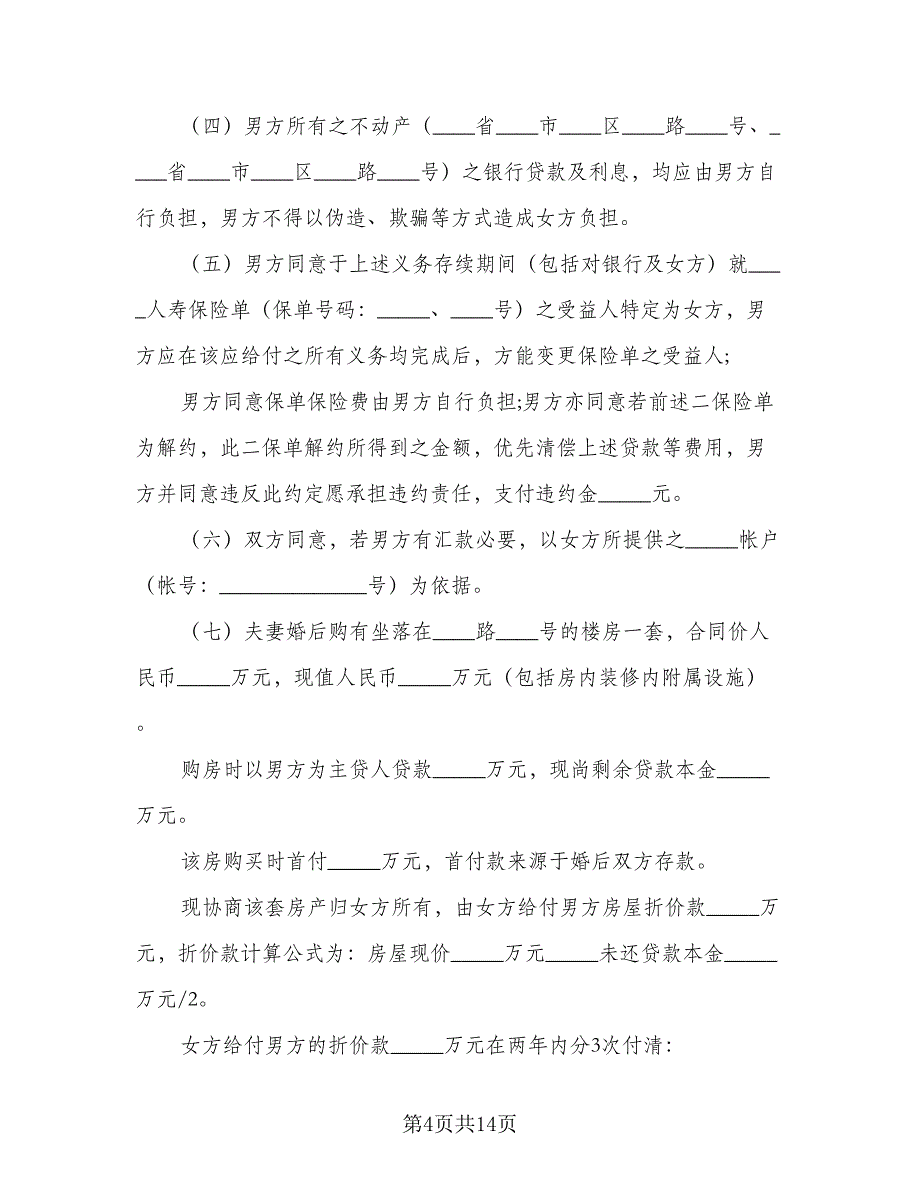 （四）男方所有之不动产（____省____市____区____路____号、_
___省____市____区____路____号）之银行贷款及利息，均应由男方自
行负担，男方不得以伪造、欺骗等方式造成女方负担。
（五）男方同意于上述义务存续期间（包括对银行及女方）就___
_人寿保险单（保单号码：_____、____号）之受益人特定为女方，男
方应在该应给付之所有义务均完成后，方能变更保险单之受益人;
男方同意保单保险费由男方自行负担;男方亦同意若前述二保险单
为解约，此二保单解约所得到之金额，优先清偿上述贷款等费用，男
方并同意违反此约定愿承担违约责任，支付违约金_____元。
（六）双方同意，若男方有汇款必要，以女方所提供之_____帐户
（帐号：______________号）为依据。
（七）夫妻婚后购有坐落在____路____号的楼房一套，合同价人
民币_____万元，现值人民币_____万元（包括房内装修内附属设施）
。
购房时以男方为主贷人贷款_____万元，现尚剩余贷款本金_____
万元。
该房购买时首付_____万元，首付款来源于婚后双方存款。
现协商该套房产归女方所有，由女方给付男方房屋折价款_____万
元，折价款计算公式为：房屋现价_____万元_____未还贷款本金_____
万元/2。
女方给付男方的折价款_____万元在两年内分3次付清：
第4页共14页